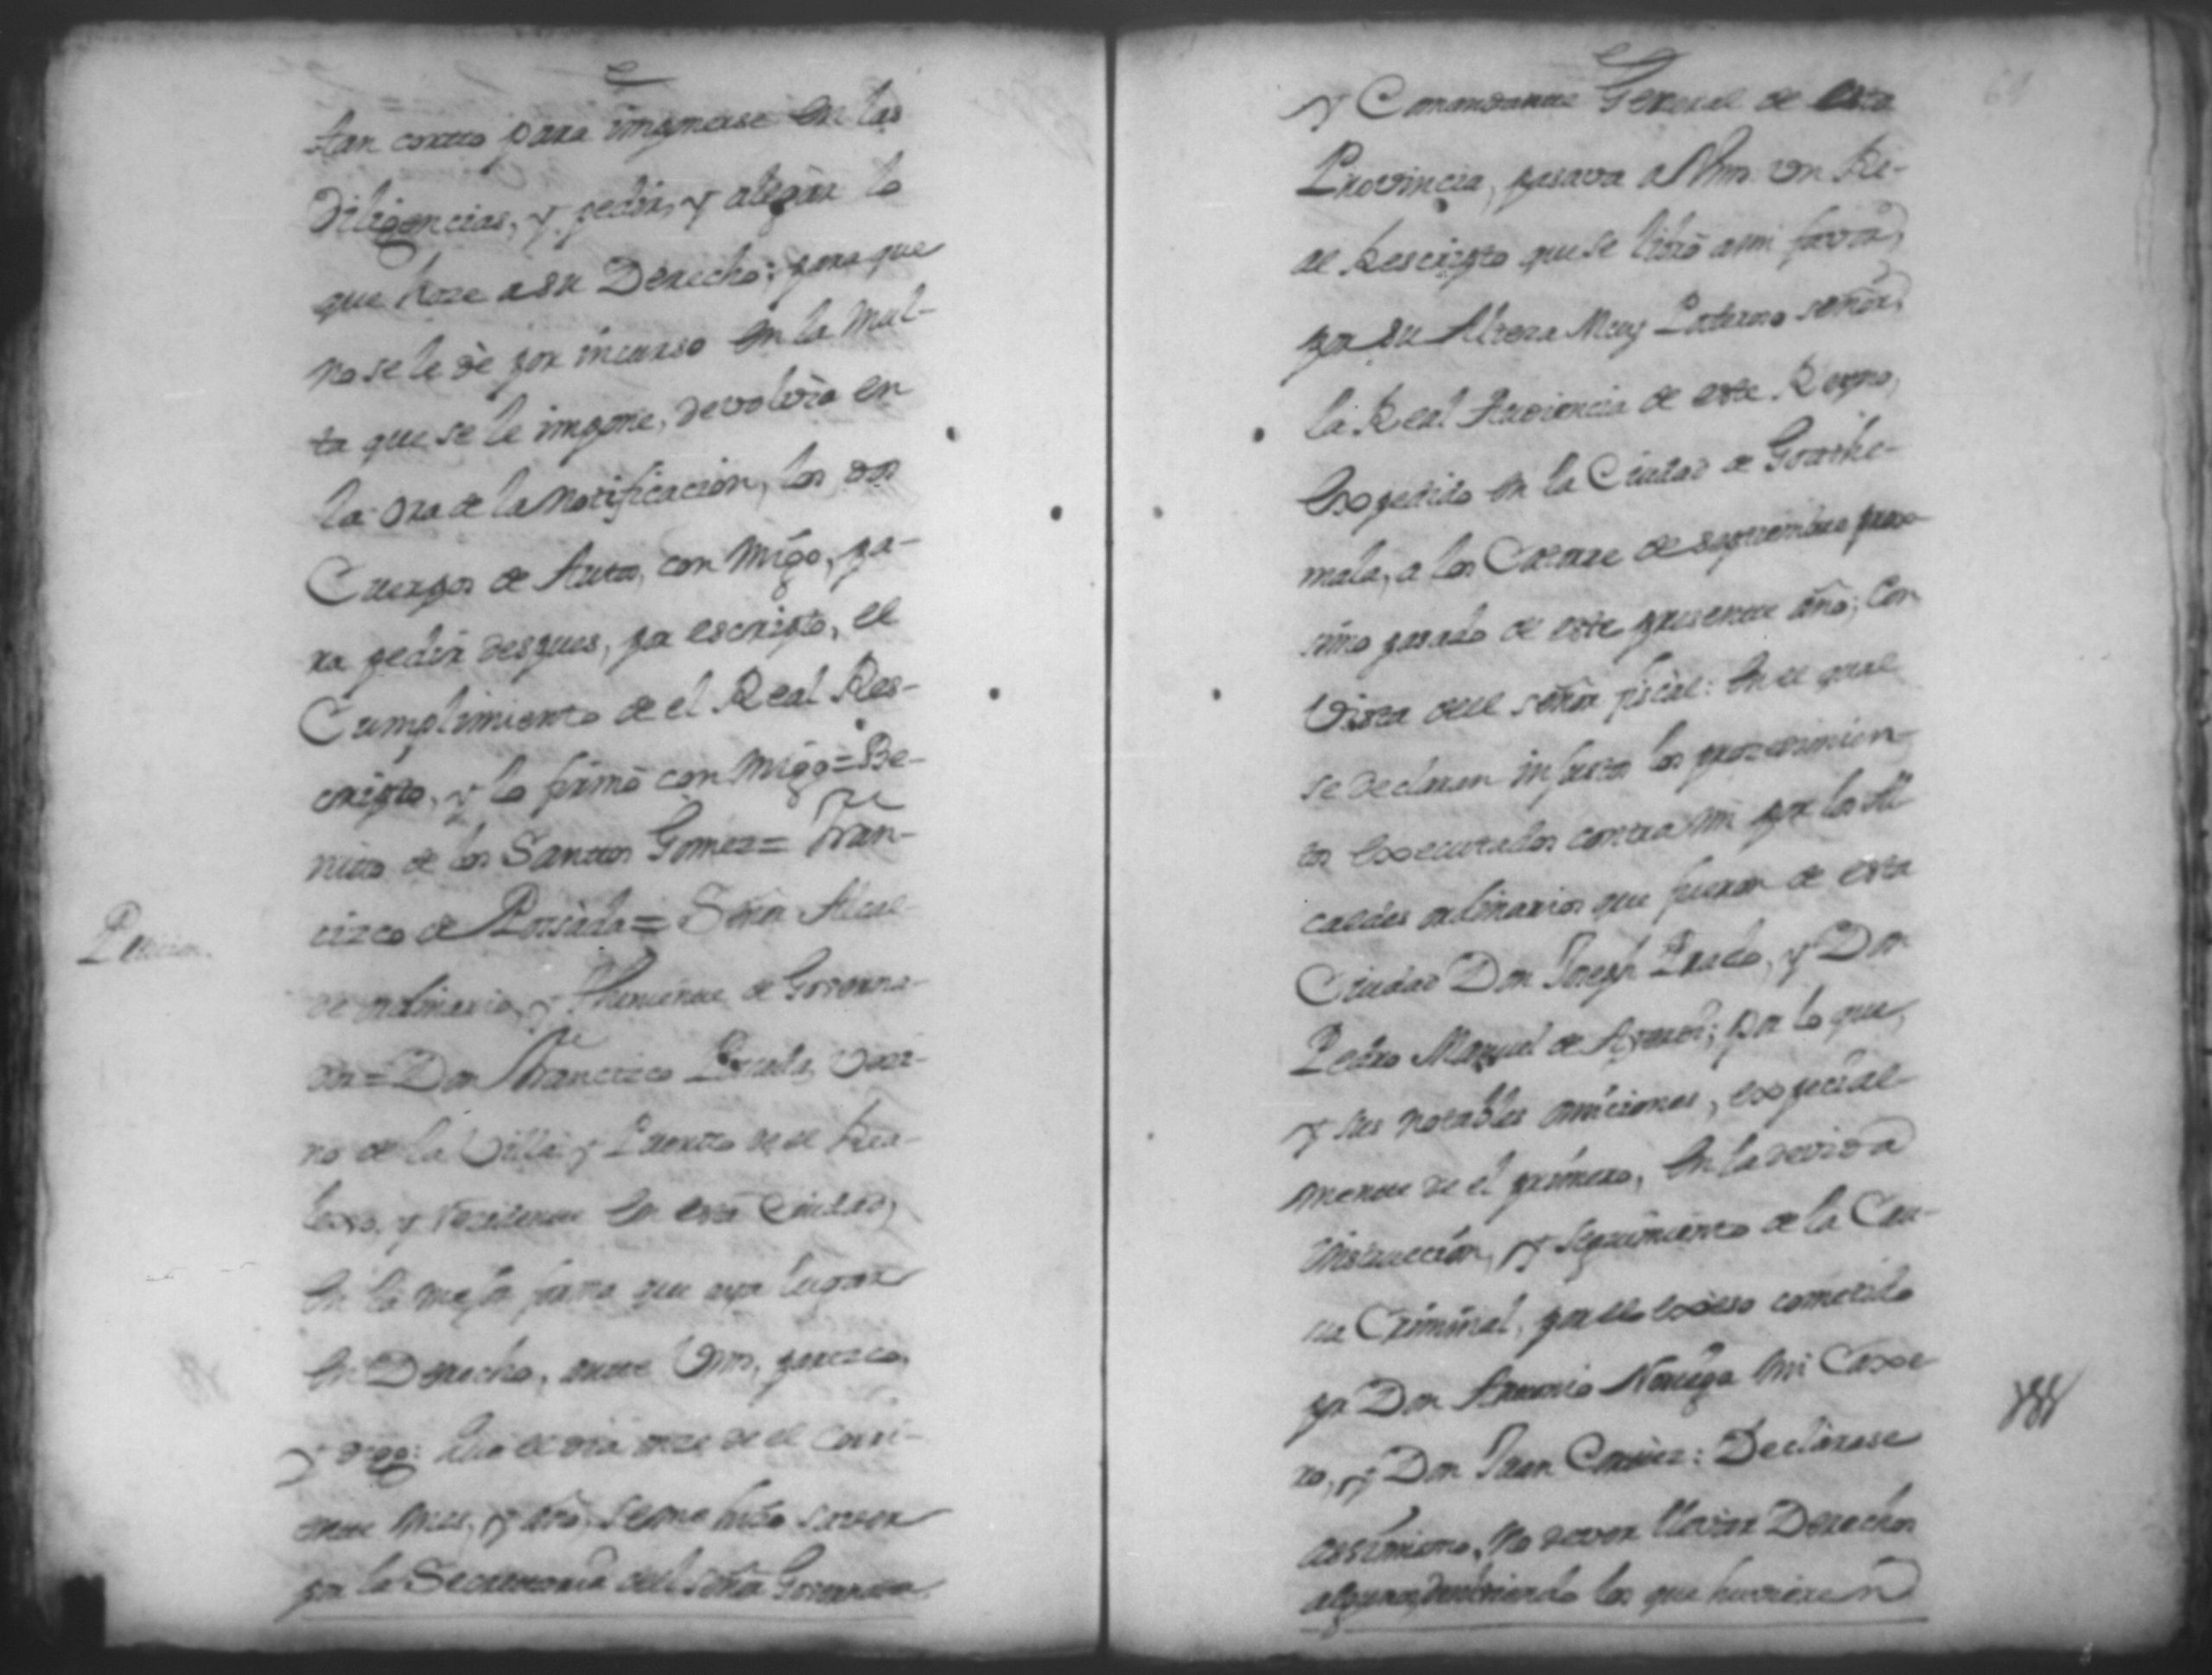 tan corto para imponerse en las
Diligencias, y pedir, y alegar lo
que haze a su Derecho; para que
no se le dè por incurso en la mul-
ta que se le impone, devolviò en
la ora de la notificacion, los dos
Cuerpos de Autos, con migo, pa-
ra pedir despues, por escripto, el
Cumplimiento de el Real Res-
cripto, y lo firmò con migo = Be-
nito de los Santos Gomez = Fran-
cizco de Posada = Señor Alcal-
Peticion.
de ordinario, y Theniente de Governa-
dor = Don Francizco Posada, Vezi-
no de la Villa y Puerto de el Rea-
lexo, y recidente en esta Ciudad,
en la mejor forma que aya lugar
en Derecho, ante Vm, parezco,
y digo: Que el dia onze de el corri-
ente mes, y año, se me hizo saver
por la Secretaria del señor Governador
y Comandante General de esta
Provincia, pasava a Vm. un Re-
al Rescripto que se librò a mi favor,
por su Alteza Muy Poderoso señor,
la Real Audiencia de este Reyno,
Expedido en la Ciudad de Goathe-
mala, a los Catorze de septiembre proxi-
mo pasado de este presente año; con
Vista del señor fiscal: en el qual
se declaran injustos los procedimien-
tos executados contra mi por los Al-
caldes ordinarios que fueron de esta
Ciudad Don Joseph Prado, y Don
Pedro Manuel de; por lo que,
y sus notables omiciones, expecial-
mente de el primero, en la devida
instruccion, y seguimiento de la Cau-
sa Criminal, por el exceso cometido
por Don Antonio Noriega mi Caxe-
ro, y Don Juan: Declarase
assimismo, no dever llevar Derechos
algunos, devolviendo los que huvieren